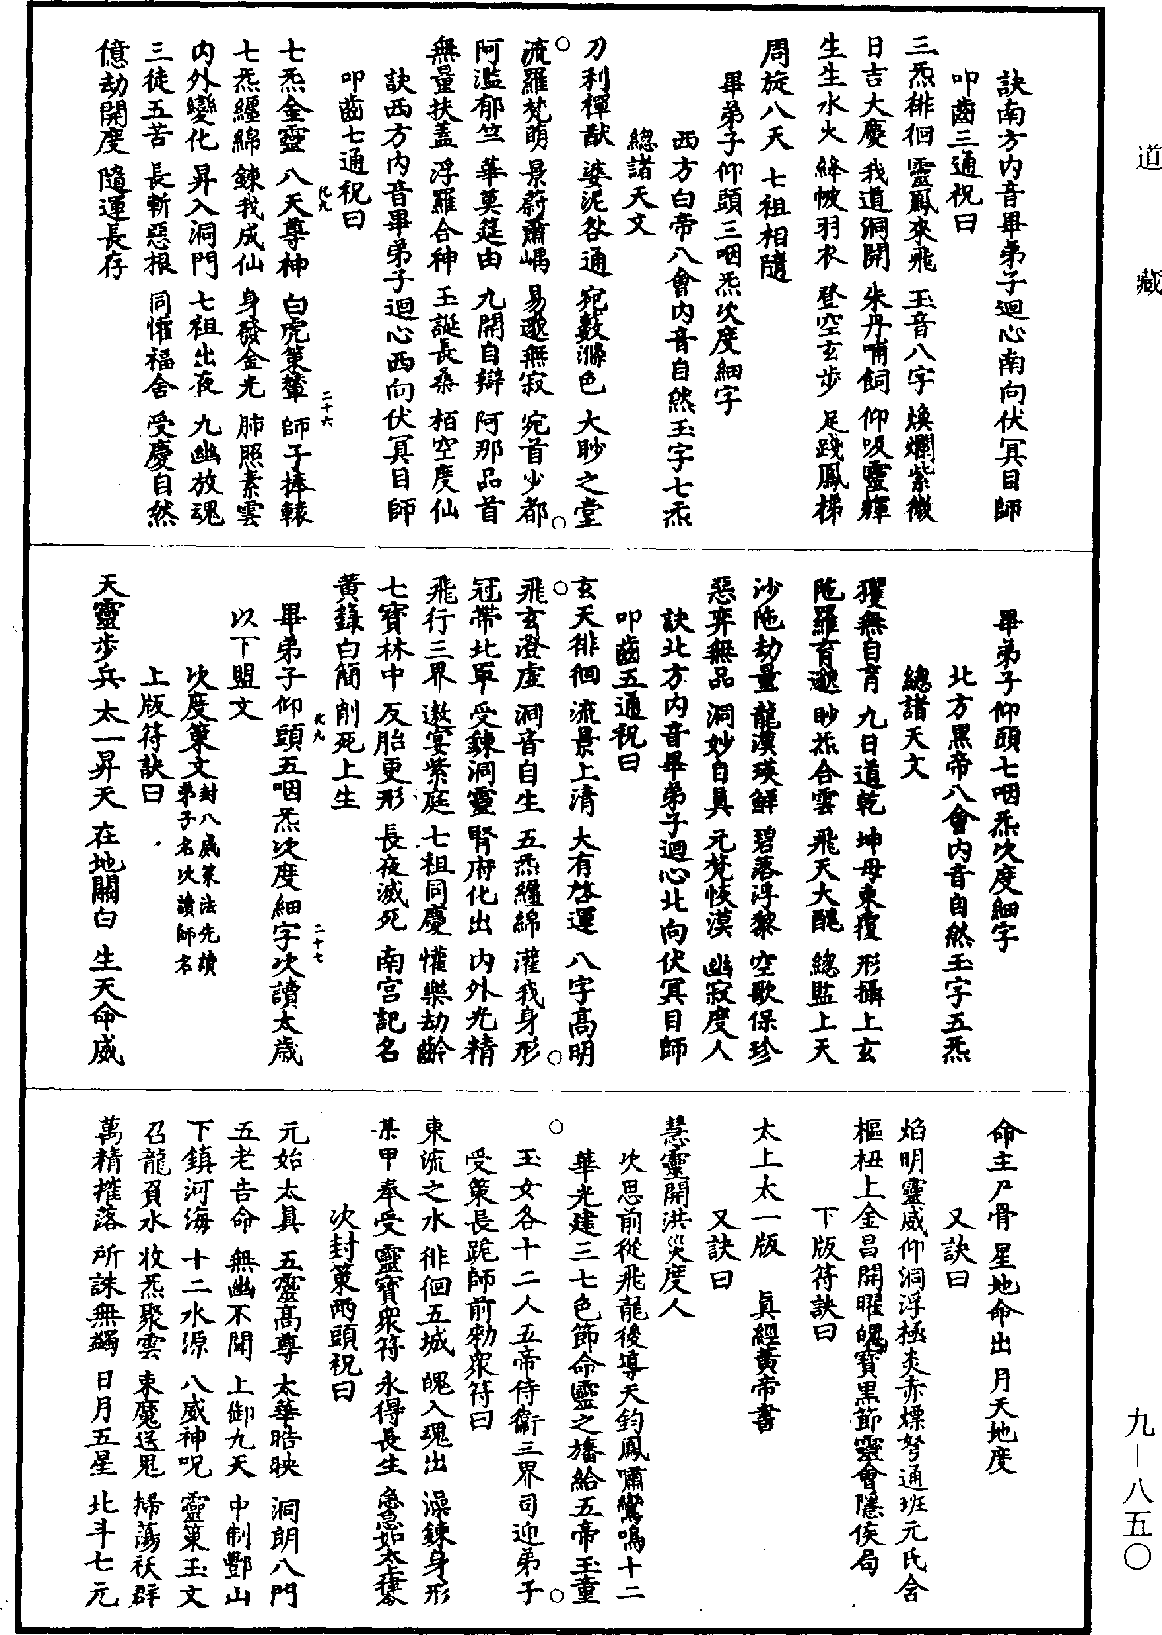 道藏
訣南方內音畢弟子迴心南向伏冥目師
叩齒三通祝曰
三炁徘徊 靈鳳來飛 玉音八字 煥爛紫微
日吉大慶 我道洞開 朱丹哺飼 仰吸靈輝
生生水火 絳帔羽衣 登空玄步 足踐鳳梯
周旋八天 七祖相隨
畢弟子仰頭三咽炁次度細字
西方白帝八會內音自然玉字七炁
總諸天文
刀利禪猷 婆泥咎通 宛藪滌色 大眇之堂
流羅梵萌 景蔚蕭嵎 易邈無寂 宛首少都
阿濫郁竺 華莫筵由 九開自辯 阿那品首
無量扶蓋 浮羅合神 玉誕長桑 栢空度仙
訣西方內音畢弟子迴心西向伏冥目師
叩齒七通祝曰
七炁金靈 八天尊神 白虎策輦 師子捧轅
七炁纏綿 鍊我成仙 身發金光 肺照素雲
內外變化 昇入洞門 七祖出夜 九幽放魂
三徒五苦 長斬惡根 同懽福舍 受慶自然
億劫開度 隨運長存
二十六
畢弟子仰頭七咽炁次度細字
北方黑帝八會內音自然玉字五炁
總諸天文
獲無自育 九日道乾 坤母東覆 形攝上玄
陁羅育邈 眇炁合雲 飛天大醜 總監上天
沙陁劫量 龍漢瑛鮮 碧落浮黎 空歌保珍
惡弈無品 洞妙自真 元梵恢漠 幽寂度人
訣北方內音畢弟子迴心北向伏冥目師
叩齒五通祝曰
玄天徘徊 流景上清 大有啓運 八字高明
飛玄澄虛 洞音自生 五炁纏綿 灌我身形
冠帶北單 受鍊洞靈 腎府化出 內外光精
飛行三界 遨宴紫庭 七祖同慶 懽樂劫齡
七寶林中 反胎更形 長夜滅死 南宮記名
黃籙白簡 削死上生
二十七
畢弟子仰頭五咽炁次度細字次讀太歲
以下盟文
次度策文 封八威策法先讀弟子名次讀師名
上版符訣曰
天靈步兵 太一昇天 在地關白 生天命威
命主尸骨 星地命出 月天地度
又訣曰
焰明靈威仰洞浮極炎赤熛弩通班元氏含
樞杻上金昌開曜魄寶黑節靈會隱侯局
下版符訣曰
太上太一版 真經黃帝書
又訣曰
慧靈開洪災度人
次思前從飛龍後導天鈞鳳嘯鸞鳴十二
華光建三七色節命靈之旛給五帝玉童
玉女各十二人五帝侍衛三界司迎弟子
受策長跪師前勑衆符曰
東流之水 徘徊五城 魄入魂出 澡鍊身形
某甲奉受 靈寶衆符 永得長生
次封策兩頭祝曰
元始太真 五靈高尊 太華晧映 洞朗八門
五老告命 無幽不聞 上御九天 中制酆山
下鎮河海 十二水源 八威神呪 靈策玉文
召龍負水 收炁聚雲 束魔送鬼 掃蕩袄群
萬精摧落 所誅無蠲 日月五星 北斗七元
九—八五〇